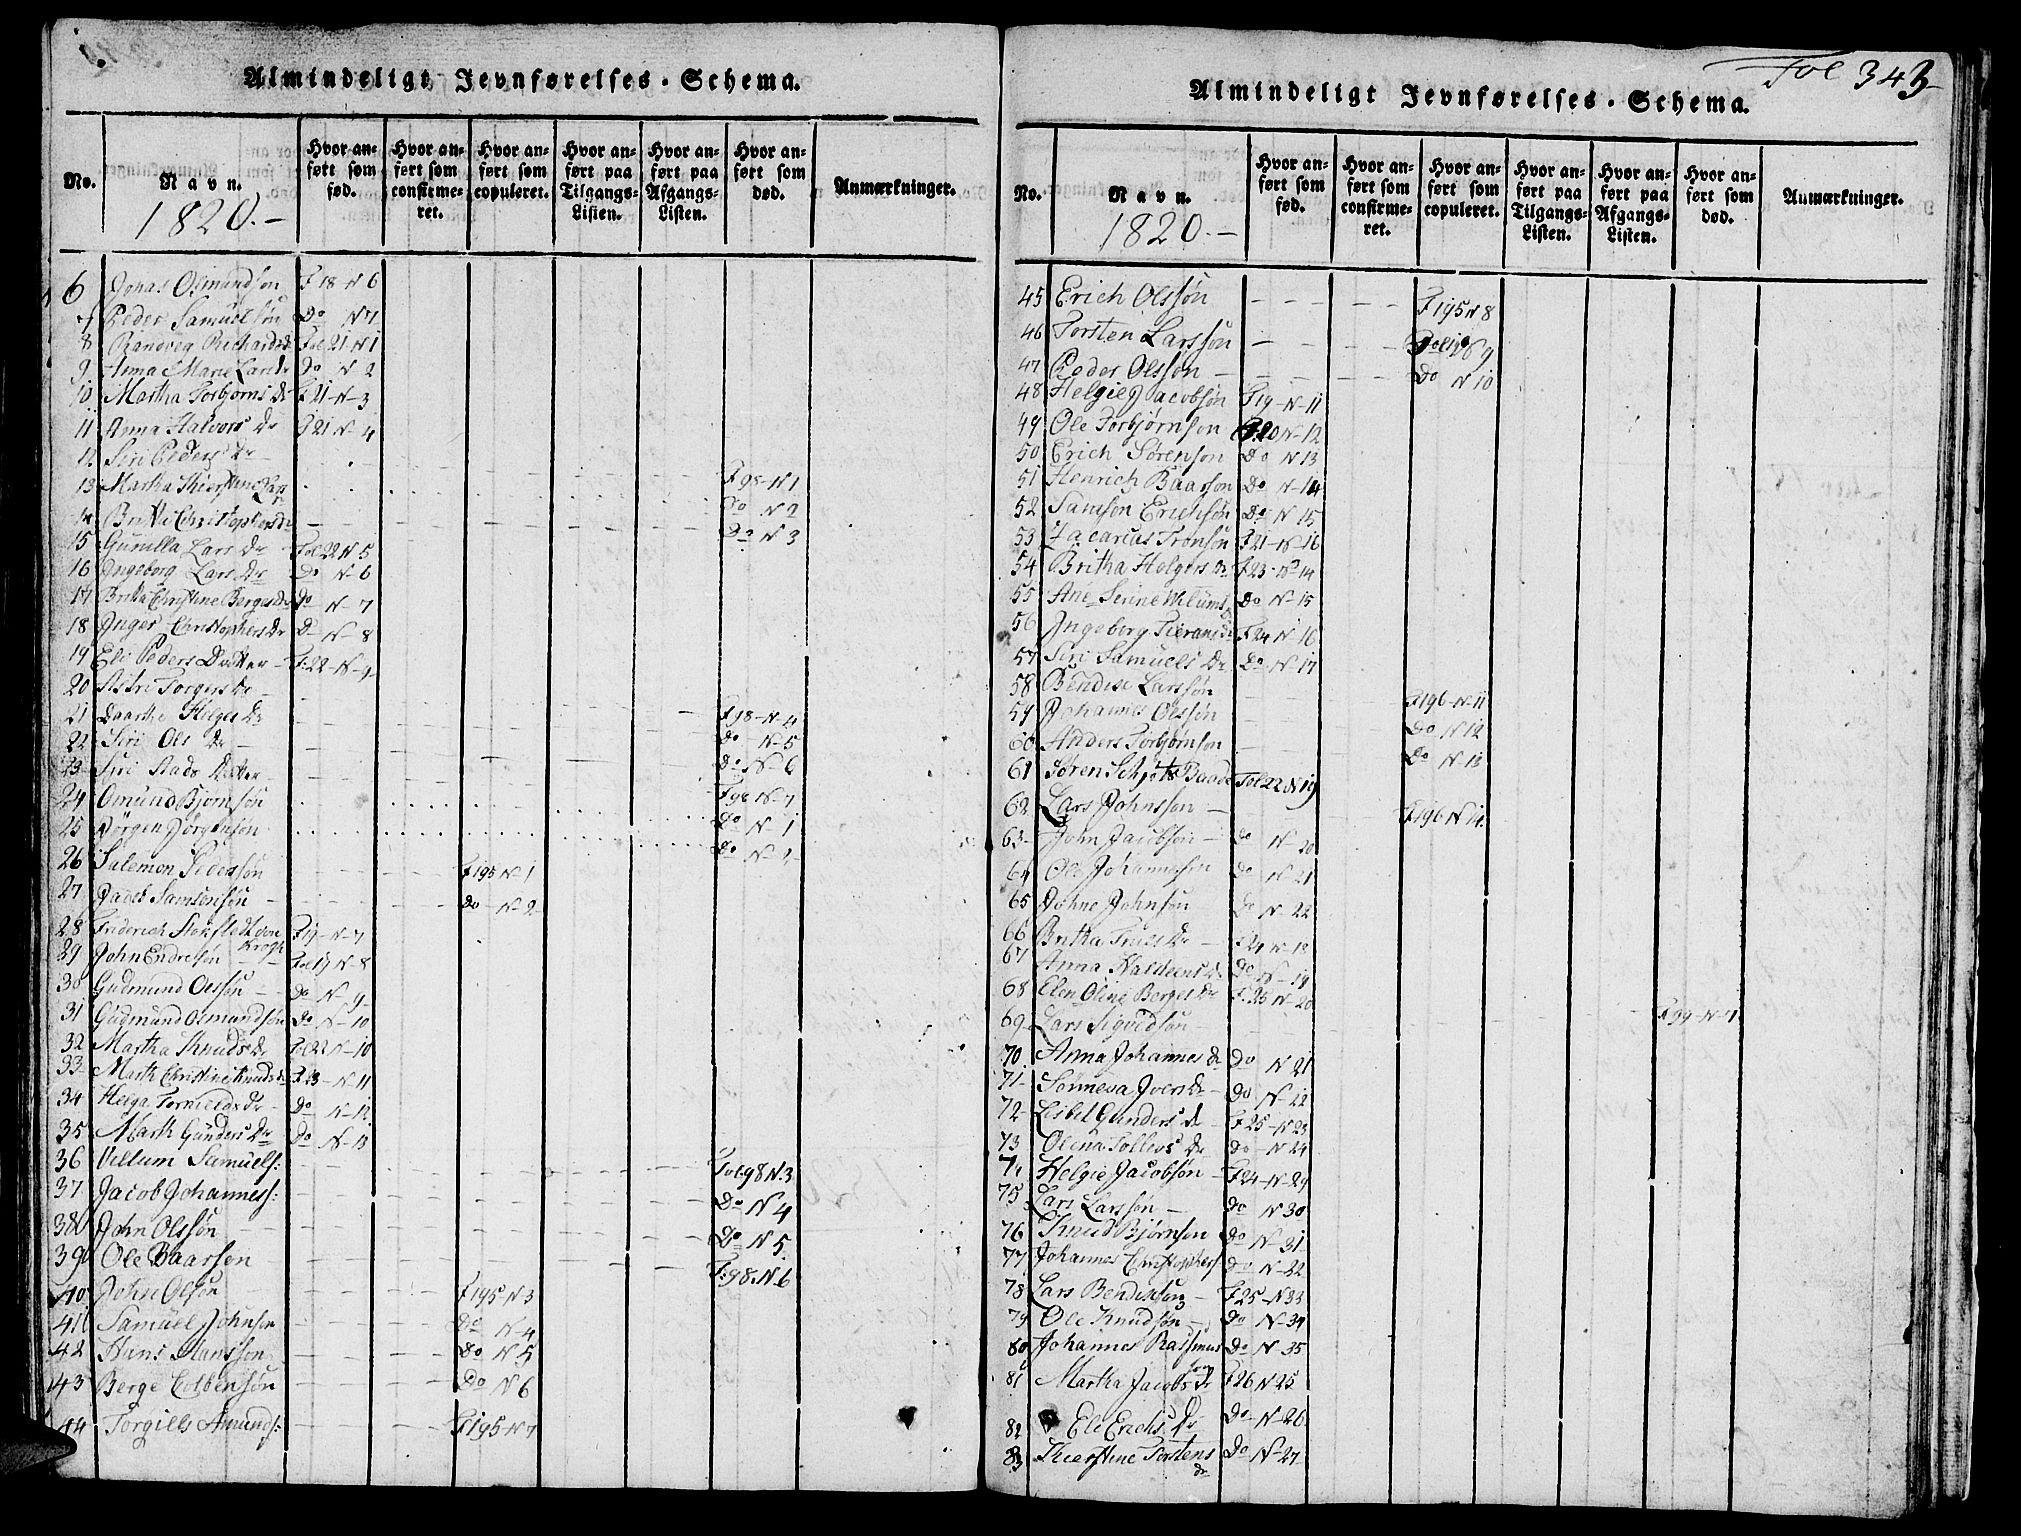 Almindeligt Jevnførelses-Schema.
No.
Navn.
Hvor anført som fød.
Hvor anført som confirmeret.
Hvor anført som copuleret.
Hvor anført paa Tilgangs-Listen.
Hvor anført paa Afgangs-Listen.
Hvor anført som død.
Anmærkninger.
1820.-
6 Jonas Osmundsøn F 18 N 6
7 Peder Samuelsøn Do N 7
8 Randveg Richardsdr Fol 21 N 1
9 Anna Marie Larsdr Do N 2
10 Martha Torbjørns Dr F 21 N 3
11 Anna Halvors Dr F 21 N 4
12 Siri Peders Dr F 98 N 1
13 Martha Thierstine Lars Do N 2
14 Britte Christophersdr Do N 3
15 Gurulla Lars Dr Fol 22 N 5
16 Ingeborg Lars Dr Do N 6
17 Britta Christine Berges Dr Do N 7
18 Inger Christophers Dr Do N 8
19 Eli Peders Datter F 22 N 9
20 Astri Torgers Dr F 98 N 4
21 Daarthe Helges Dr Do N 5
22 Siri Ols Dr Do N 6
23 Siri Aads Datter F 98 N 7
24 Omund Bjørnsøn Do N 1
25 Jørgen Jørgensøn Do N 2
26 Salemon Pedersøn F 195 N 1
27 Jacob Samsensøn Do N 2
28 Friderich Stokfledt von Krogh F 19 N 7
29 John Endresøn Fol 19 N 8
30 Gudmund Olssøn Do N 9
31 Gudmund Osmundsøn Do N 10
32 Martha Knuds Dr Fol 22 N 10
33 Marth Christine Knuds dr F 23 N 11
34 Helga Tormelds Dr Do N 12
35 Marth Gunders Dr Do N 13
36 Villum Samuels: Fol: 98 N. 3
37 Jacob Johanness: Do N 4
38 John Olssøn Do N 5.
39 Ole Baarsøn F: 98. N. 6
40 John Olsøn F 195 N 3
41 Samuel Johnsøn Do N 4
42 Hans Hanssøn Do N 5
43 Berge Colbensøn Do N 6
44 Torgills Amunds: F 195 N 7
Fol 343
Almindeligt Jevnførelses-Schema.
No.
Navn.
Hvor anført som fød.
Hvor anført som confirmeret.
Hvor anført som copuleret.
Hvor anført paa Tilgangs-Listen.
Hvor anført paa Afgangs-Listen.
Hvor anført som død.
Anmærkninger.
1820.-
45 Erich Olssøn F 195 N 8
46 Torsten Larssøn N 9
47 Peder Olssøn Do N 10
48 Helgie Jacobsøn F 19 N 11
49 Ole Torbjørnsøn F 20 N 12
50 Erich Sørensøn Do N 13
51 Henrich Baarsøn Do N 14
52 Samson Erichsøn Do N 15
53 Zacarius Trønsøn F 21 N 16
54 Britha Helgers Dr F 23 No 14
55 Ane Serine Do N 15
56 Ingeborg F 24 N 16
57 Siri Samuels Dr Do N 17
58 Bendix Larssøn F 196 N 11
59 Johannes Olssøn Do N 12
60 Anders Torbjørnsøn Do N 13
61 Søren Schjøtt Baade Fol 22 N 19
62 Lars Johnssøn F 196 N 14
63 John Jacobsøn Do N 20
64 Ole Johannesøn Do N 21
65 Johne Johnsøn Do N 22
66 Britha Truls Dr F 24 N 18
67 Anna Halsteens Dr Do N 19
68 Elen Oline Berges Dr F: 25 N 20
69 Lars Sigvedsøn F 99 N 7
70 Anna Johannes Dr Do N 21
71 Sønneva Ivers Dr Do N 22
72 Lisbet Gunders d F 25 N 23
73 Olena Tollevs Dr do N 24
74 Helgie Jacobsøn F 24 N 29
75 Lars Larssøn do N 30
76 Knud Bjørnsøn Do N 31
77 Johannes Christophers Do N 22
78 Lars Bendixsøn F 25 N 33
79 Ole Knudsøn Do N 34
80 Johannes Rasmussøn Do N 35
81 Martha Jacobs Dr F 26 N 25
82 Eli Erichs Dr Do N 26
83 Thierstine Torstens dr Do N 27